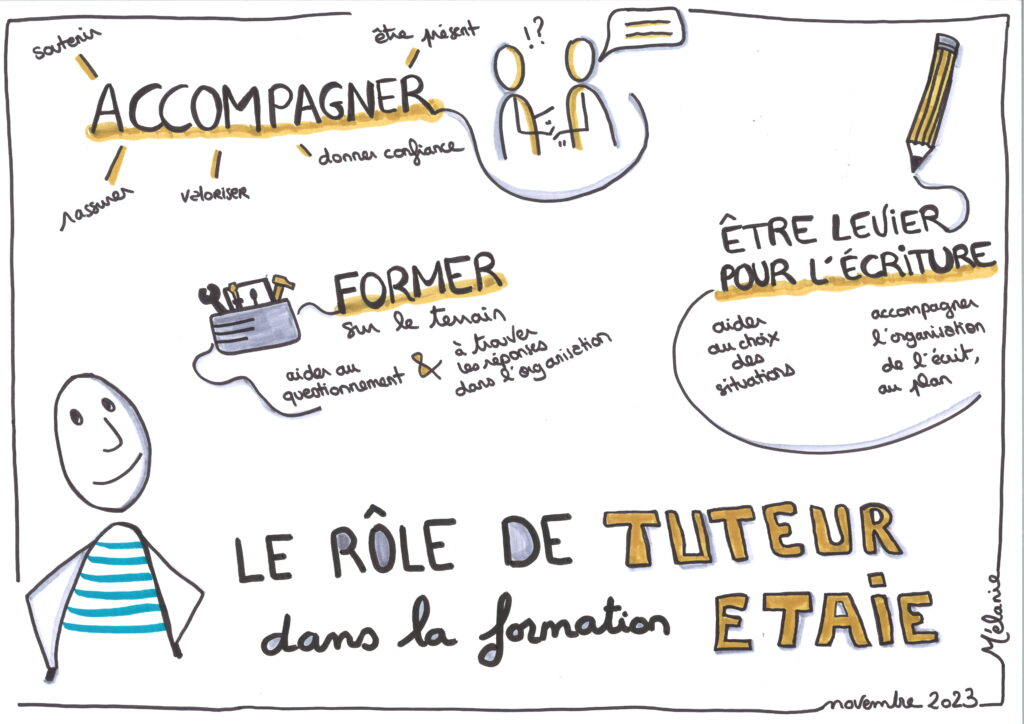 soutenir
être présent
ACCOMPAGNER
!?
donner confiance
rassurer
valoriser
ÊTRE LEVIER
POUR L'ÉCRITURE
aider
au choix
des
situations
accompagner
l'organisation
de l'écrit,
au plan
FORMER
sur le terrain
aider au
questionnement
&
à trouver
les réponses
dans l'organisation
LE RÔLE DE TUTEUR
dans la formation ETAIE
Mélanie
novembre 2023